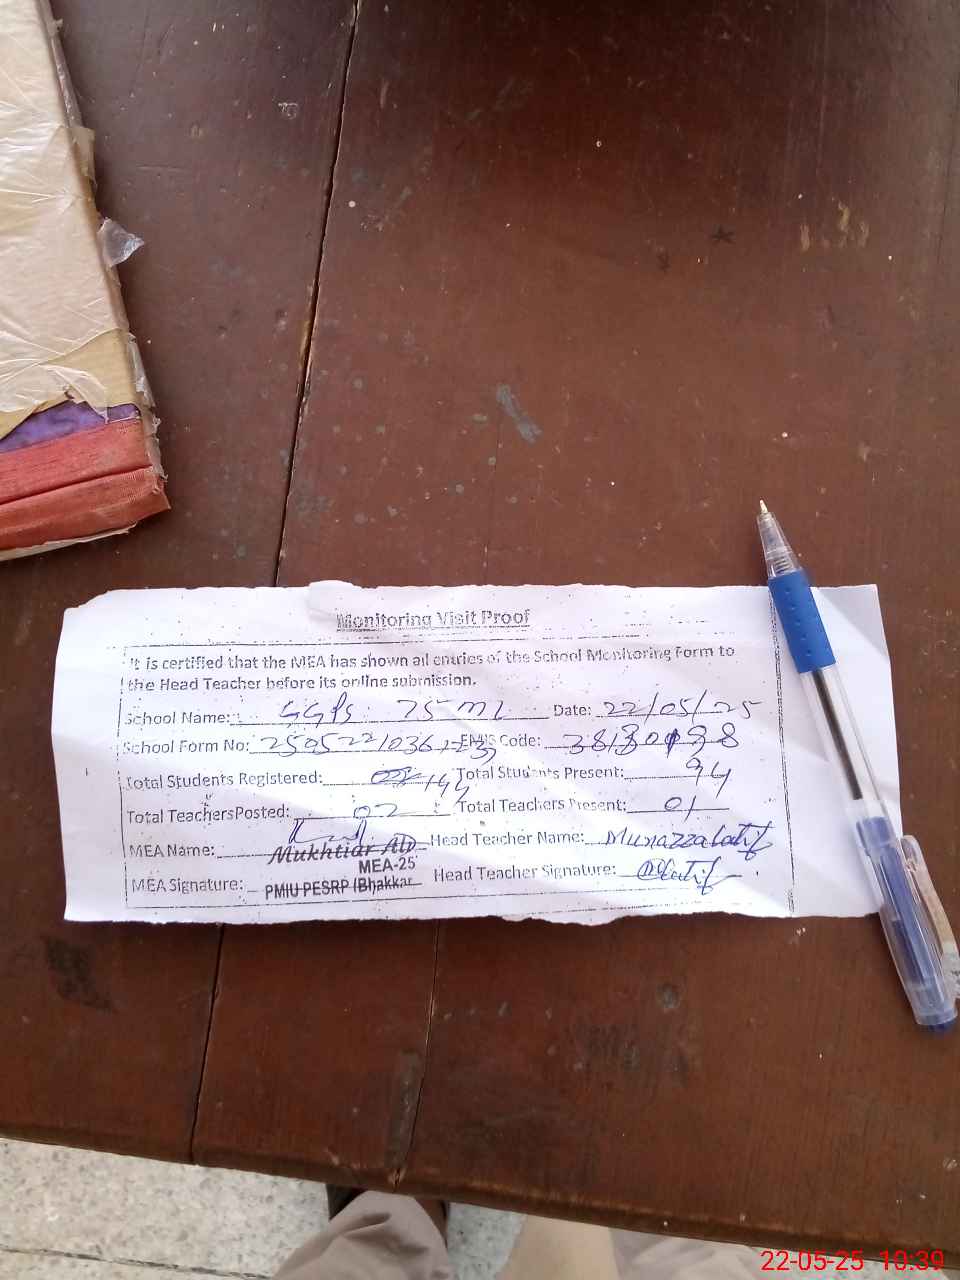 Monitoring Visit Proof
It is certified that the MEA has shown all entries of the School Monitoring Form to
the Head Teacher before its online submission.
School Name: GGPS 75 ML Date: 22/05/25
School Form No: EMIS Code:
Total Students Registered: 144 Total Students Present: 94
Total TeachersPosted: 02 Total Teachers Present: 01
MEA Name: Mukhtiar Head Teacher Name: Munazza Latif
MEA-25
MEA Signature: PMIU PESRP (Bhakkar Head Teacher Signature: Latif
22-05-25 10:39